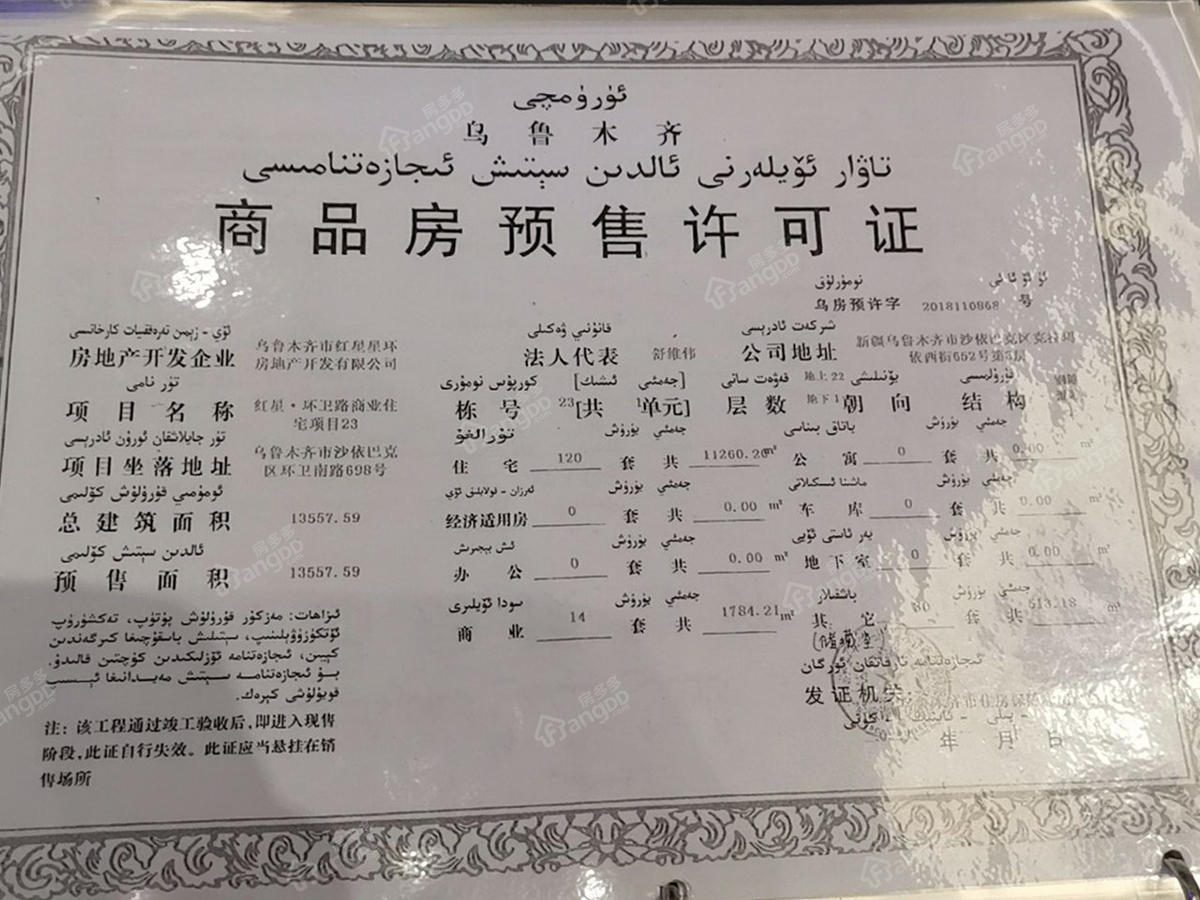 ئۈرۈمچى
乌鲁木齐
تاۋار ئۆيلەرنى ئالدىن سېتىش ئىجازەتنامىسى
商品房预售许可证
نومۇرلۇق
乌房预许字 2018110868 号
ئۆي - زېمىن تەرەققىيات كارخانىسى
房地产开发企业 乌鲁木齐市红星星环
房地产开发有限公司
قانۇنىي ۋەكىلى
法人代表 舒维伟
شىركەت ئادرېسى
公司地址 新疆乌鲁木齐市沙依巴克区克拉玛
依西街652号第 层
تۈر نامى
项目名称 红星·环卫路商业住
宅项目23
كورپۇس نومۇرى [جەمئىي ئىشىك]
栋号 23[共 1单元]
قەۋەت سانى
层数 地上22
地下1
يۆنىلىشى
朝向
قۇرۇلمىسى
结构
تۈر جايلاشقان ئورۇن ئادرېسى
项目坐落地址 乌鲁木齐市沙依巴克
区环卫南路698号
تۇرالغۇ جەمئىي يۈرۈش
住宅 120 套 共 11260.20 m²
ياتاق بىناسى جەمئىي يۈرۈش
公寓 0 套 共 0.00 m²
ئومۇمىي قۇرۇلۇش كۆلىمى
总建筑面积 13557.59
ئەرزان - قولايلىق ئۆي جەمئىي يۈرۈش
经济适用房 0 套 共 0.00 m²
ماشىنا ئىسكىلاتى جەمئىي يۈرۈش
车库 0 套 共 0.00 m²
ئالدىن سېتىش كۆلىمى
预售面积 13557.59
ئىش بېجىرىش جەمئىي يۈرۈش
办公 0 套 共 0.00 m²
يەر ئاستى ئۆيى جەمئىي يۈرۈش
地下室 0 套 共 0.00 m²
سودا ئۆيلىرى جەمئىي يۈرۈش
商业 14 套 共 1784.21 m²
باشقىلار جەمئىي يۈرۈش
其它 80 套 共 513.18 m²
(储藏室)
ئىزاھات: مەزكۇر قۇرۇلۇش پۈتۈپ، تەكشۈرۈپ
ئۆتكۈزۈۋېلىنىپ، سېتىلىش باسقۇچىغا كىرگەندىن
كېيىن، ئىجازەتنامە ئۆزلىكىدىن كۈچتىن قالىدۇ.
بۇ ئىجازەتنامە سېتىش مەيدانىغا ئېسىپ
قويۇلۇشى كېرەك.
注：该工程通过竣工验收后,即进入现售
阶段,此证自行失效。此证应当悬挂在销
售场所
ئىجازەتنامە تارقاتقان ئورگان
发证机关: 齐市住房保
يىلى - ئاينىڭ - كۈنى
年 月 日
房多多
angDD